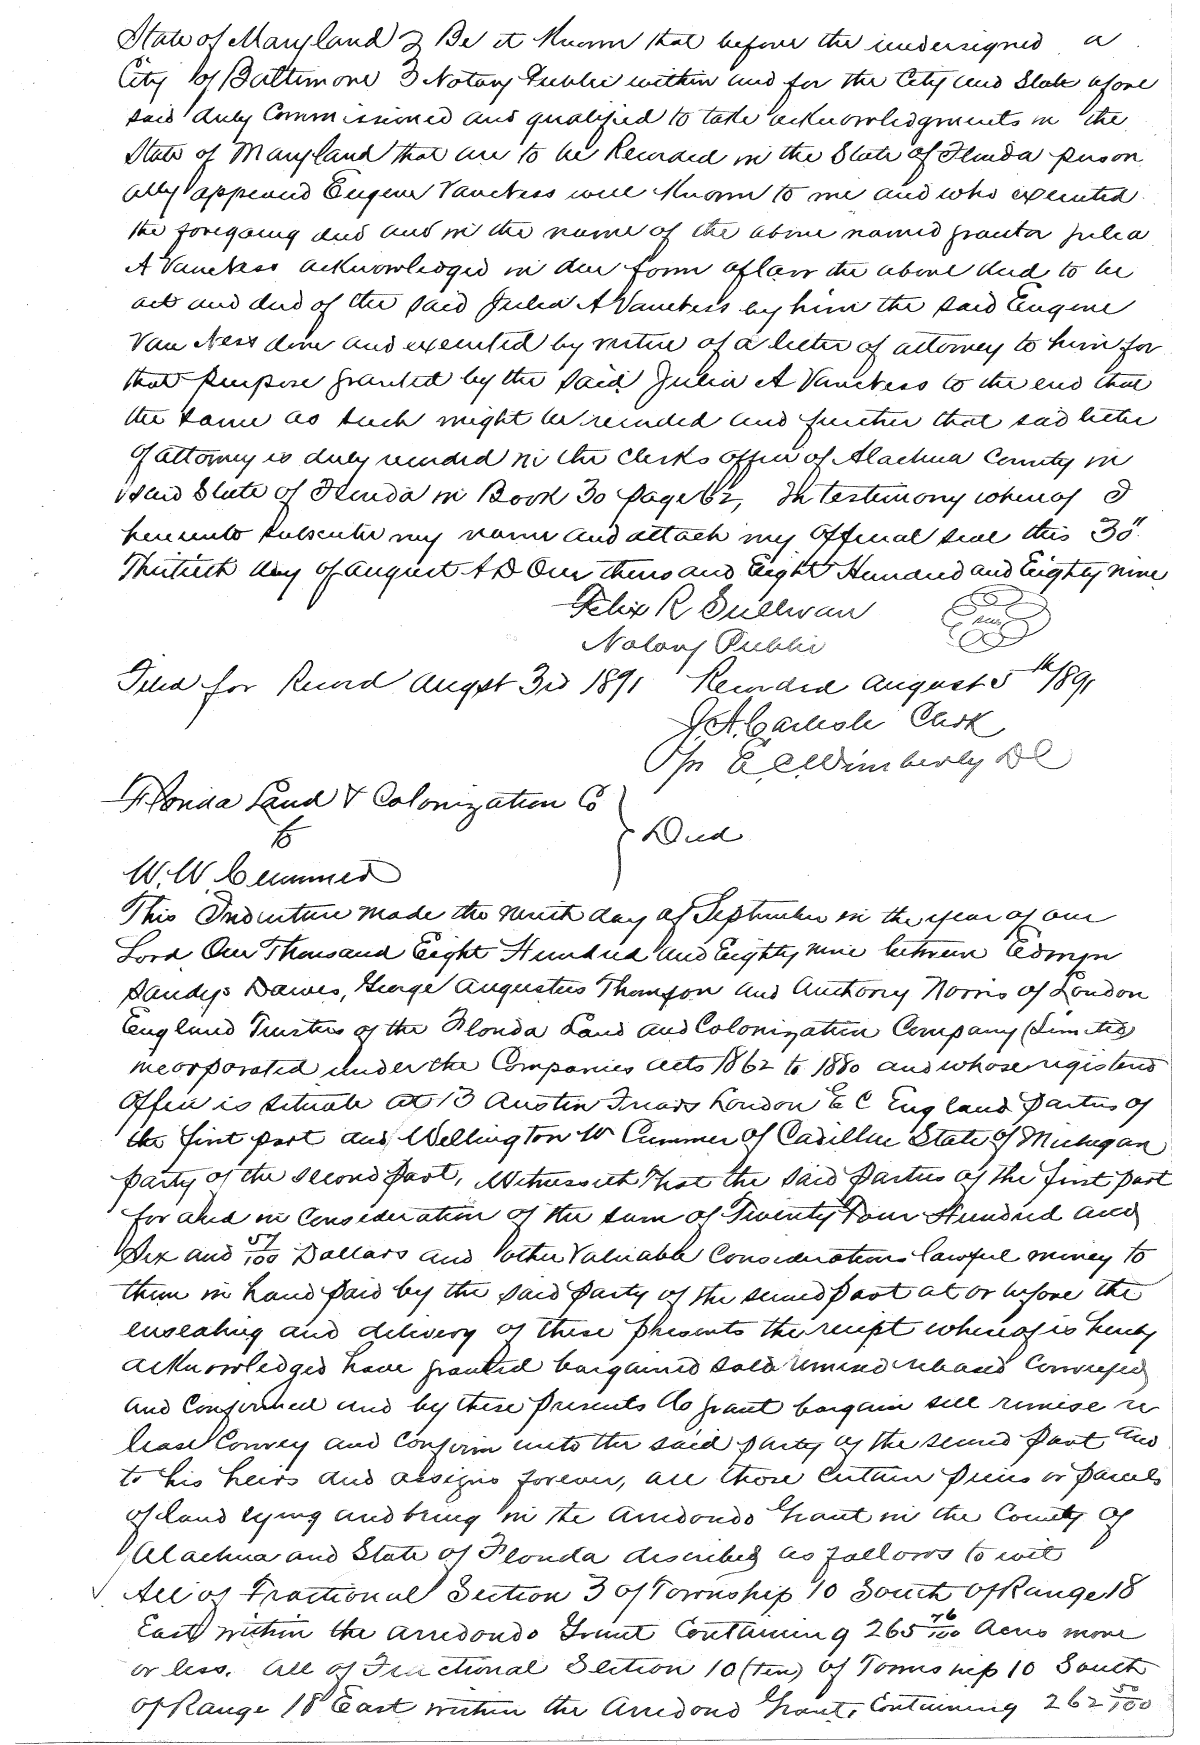 State of Maryland } Be it Known that before the undersigned a
City of Baltimore } Notary Public within and for the City and State afore
said duly Commissioned and qualified to take acknowledgments in the
State of Maryland that are to be Recorded in the State of Florida person
ally appeared Eugene VanNess well Known to me and who executed
the foregoing deed and in the name of the above named grantor Julia
A VanNess acknowledged in due form of law the above deed to be
act and deed of the said Julia A VanNess by him the said Eugene
Van Ness done and executed by virtue of a letter of attorney to him for
that purpose granted by the said Julia A VanNess to the end that
the same as such might be recorded and further that said letter
of attorney is duly recorded in the Clerks office of Alachua County in
said State of Florida in Book 30 page 62, In testimony whereof I
hereunto subscribe my name and attach my Official seal this 30"
Thirtieth day of August A D One thousand Eight Hundred and Eighty nine
Felix R Sullivan
Notary Public
Filed for Record Augst 3rd 1891 Recorded August 5th/891
J.A. Carlisle Clerk
Pr E.C. Wimberly DC
Florida Land & Colonization Co
to } Deed
W.W. Cummer
This Indenture made the ninth day of September in the year of our
Lord One Thousand Eight Hundred and Eighty nine between Edwyn
Sandys Dawes, George Augustus Thomson and Anthony Norris of London
England Trustees of the Florida Land and Colonization Company (Limited)
incorporated under the Companies Acts 1862 to 1880 and whose registered
Office is situate at 13 Austin Friars London E C England parties of
the first part and Wellington W Cummer of Cadillac State of Michigan
party of the second part, Witnesseth That the said parties of the first part
for and in consideration of the sum of Twenty Four Hundred and
Six and 57/100 Dollars and other Valuable Considerations lawful money to
them in hand paid by the said party of the second part at or before the
ensealing and delivery of these presents the receipt whereof is hereby
acknowledged have granted bargained sold remised released Conveyed
and Confirmed and by these presents do grant bargain sell remise re
lease Convey and Confirm unto the said party of the second part and
to his heirs and assigns forever, all those certain pieces or parcels
of land lying and being in the Arredondo Grant in the County of
Alachua and State of Florida described as follows to wit
All of Fractional Section 3 of Township 10 South of Range 18
East within the Arredondo Grant Containing 265 76/100 Acres more
or less. All of Fractional Section 10 (ten) of Township 10 South
of Range 18 East within the Arredond Grant, Containing 262 50/100